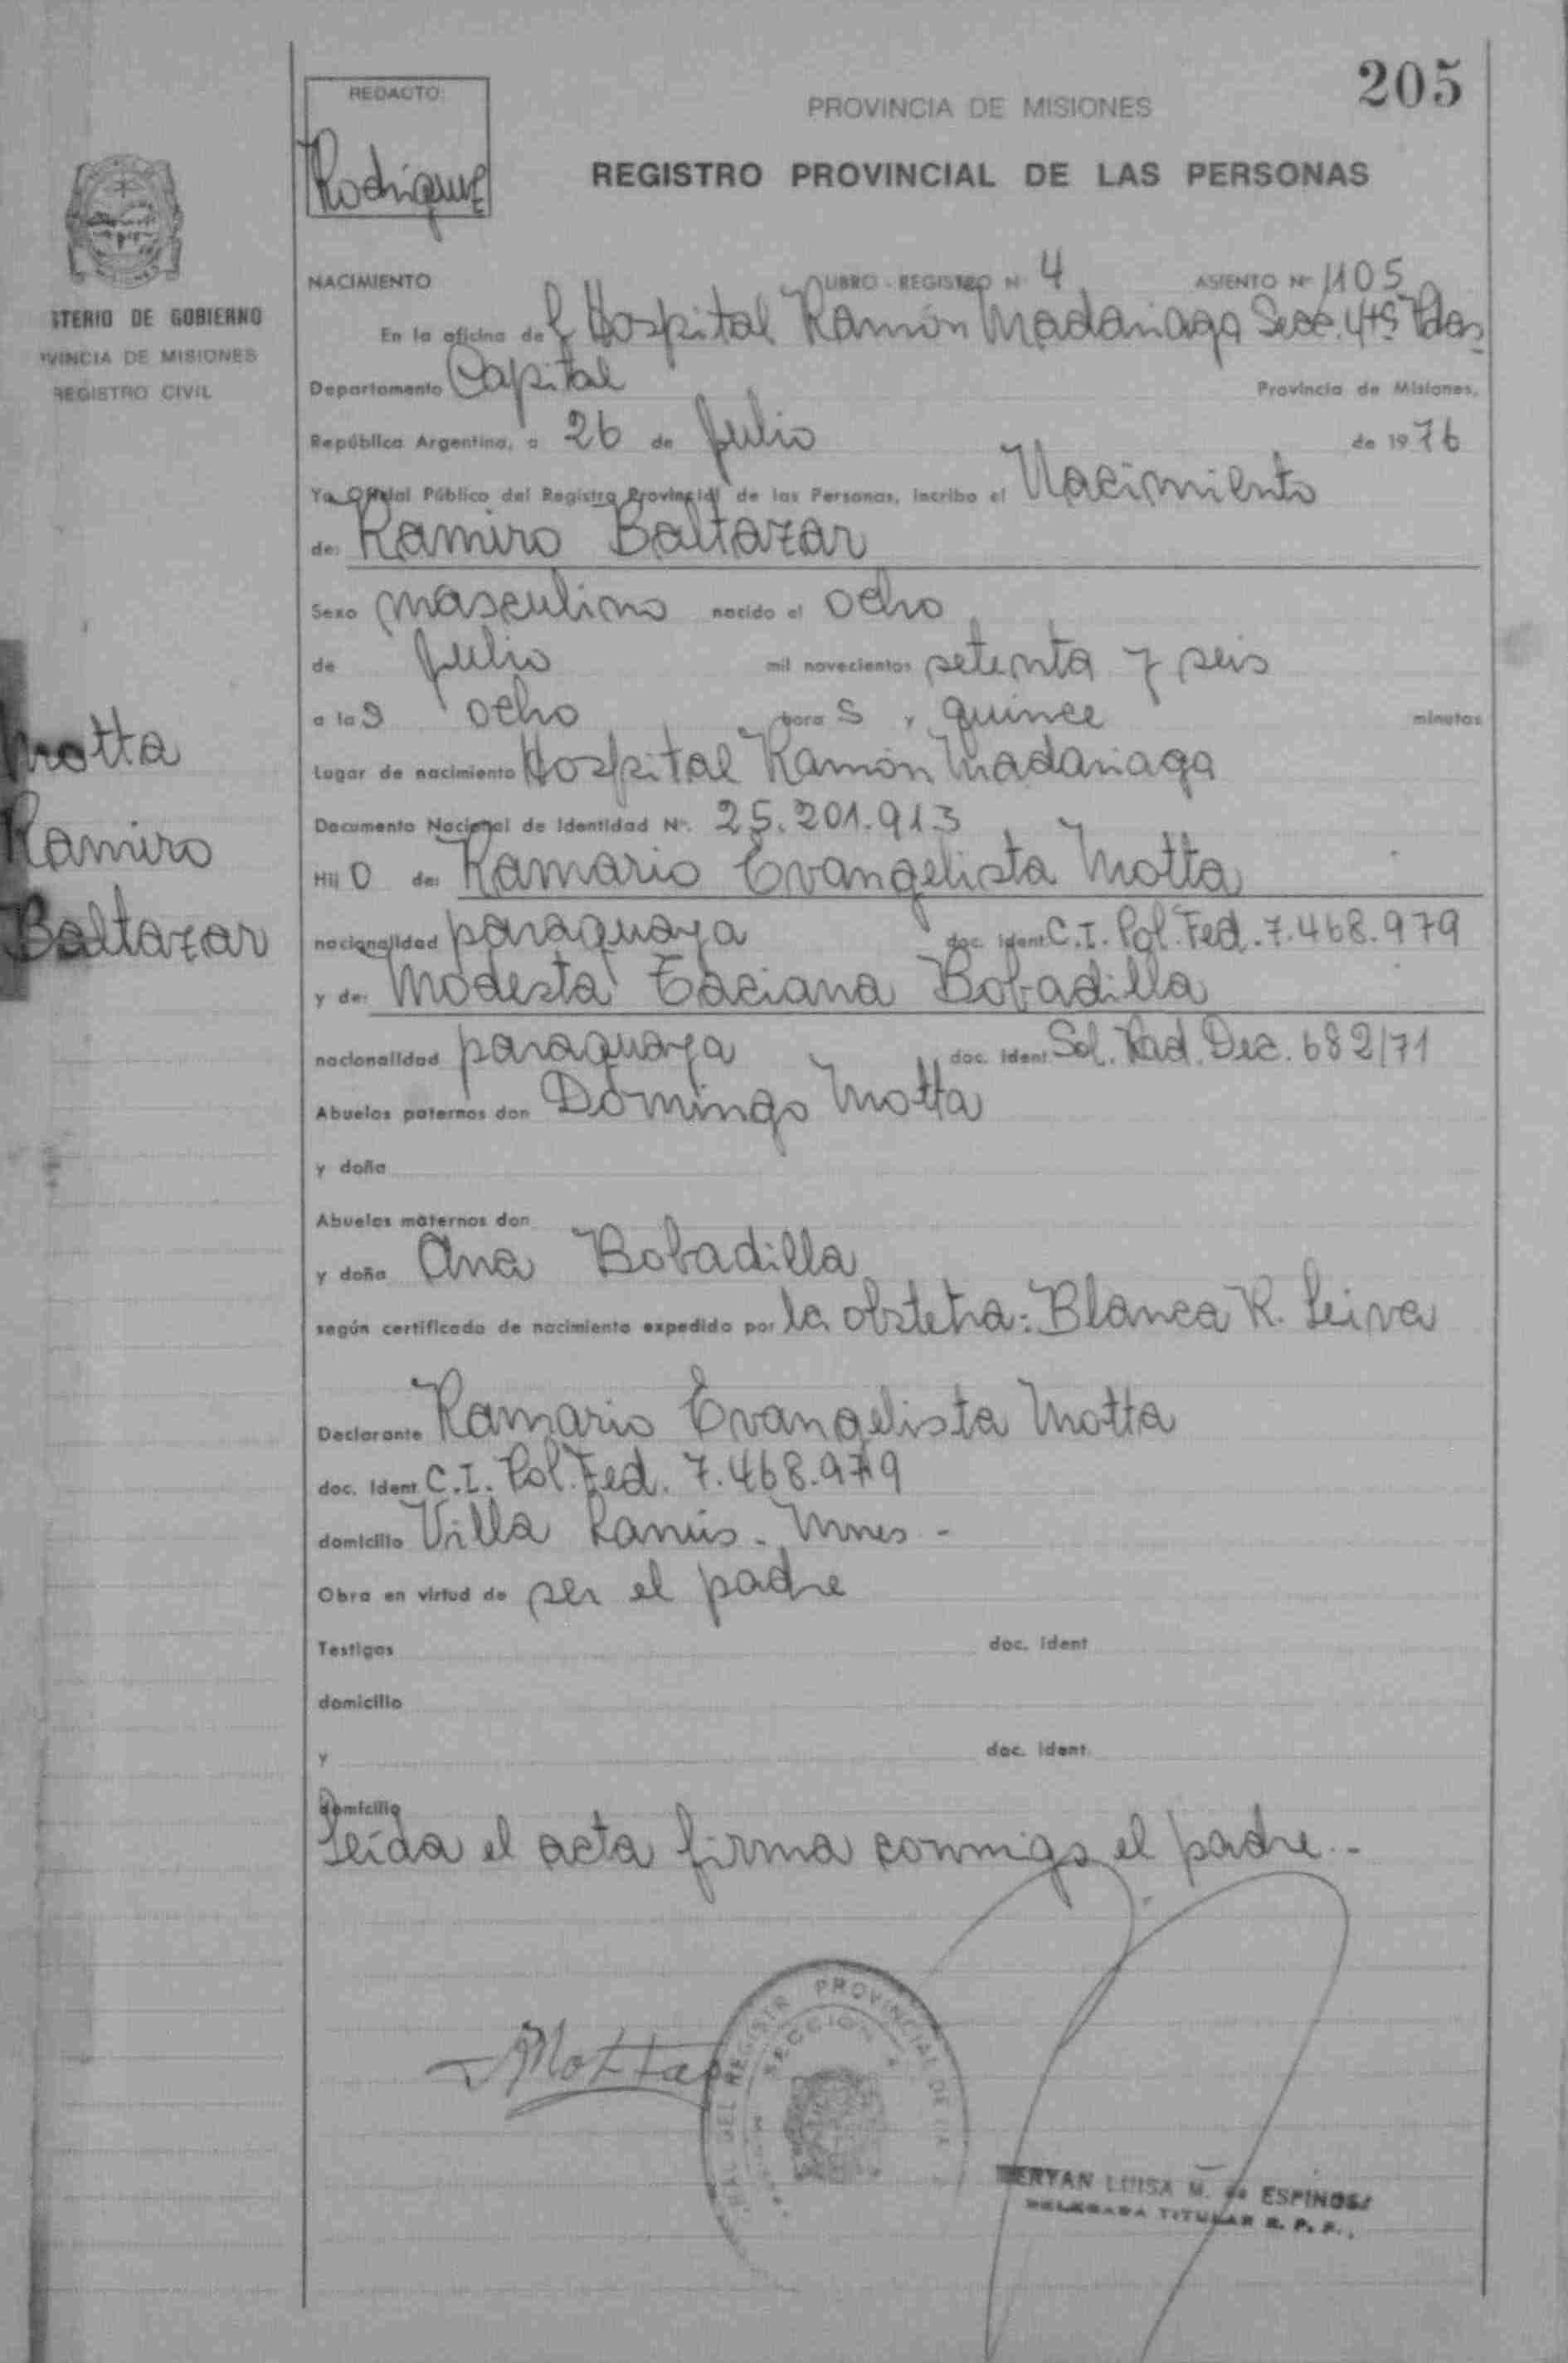 205
REDACTO:
Rodriguez
PROVINCIA DE MISIONES
REGISTRO PROVINCIAL DE LAS PERSONAS
STERIO DE GOBIERNO
VINCIA DE MISIONES
REGISTRO CIVIL
NACIMIENTO LIBRO - REGISTRO Nº 4 ASIENTO Nº 1105
En la oficina del Hospital Ramón Madariaga Secc. 4ta Pdas
Departamento Capital Provincia de Misiones,
República Argentina, a 26 de Julio de 1976
Yo Oficial Público del Registro Provincial de las Personas, inscribo el Nacimiento
de: Ramiro Baltazar
Sexo masculino nacido el ocho
de Julio mil novecientos setenta y seis
a las ocho horas y quince minutos
Lugar de nacimiento Hospital Ramón Madariaga
Documento Nacional de Identidad Nº. 25.201.913
Hijo de: Ramario Evangelista Motta
nacionalidad paraguaya doc. ident. C.I. Pol. Fed. 7.468.979
y de: Modesta Taciana Bobadilla
nacionalidad paraguaya doc. ident. Sol. Rad. Dec. 682/71
Abuelos paternos don Domingo Motta
y doña
Abuelos maternos don
y doña Ana Bobadilla
según certificado de nacimiento expedido por la obstetra: Blanca R. Leiva
Declarante Ramario Evangelista Motta
doc. ident C.I. Pol. Fed. 7.468.979
domicilio Villa Lanús - Mnes -
Obra en virtud de ser el padre
Testigos doc. ident
domicilio
y doc. ident.
domicilio
Leída el acta firma conmigo el padre.-
Motta
Ramiro
Baltazar
Motta
DEL REGISTR PROVINCIAL DE
SECCION
ERYAN LUISA M. de ESPINOSA
DELEGADA TITULAR R. P. P.